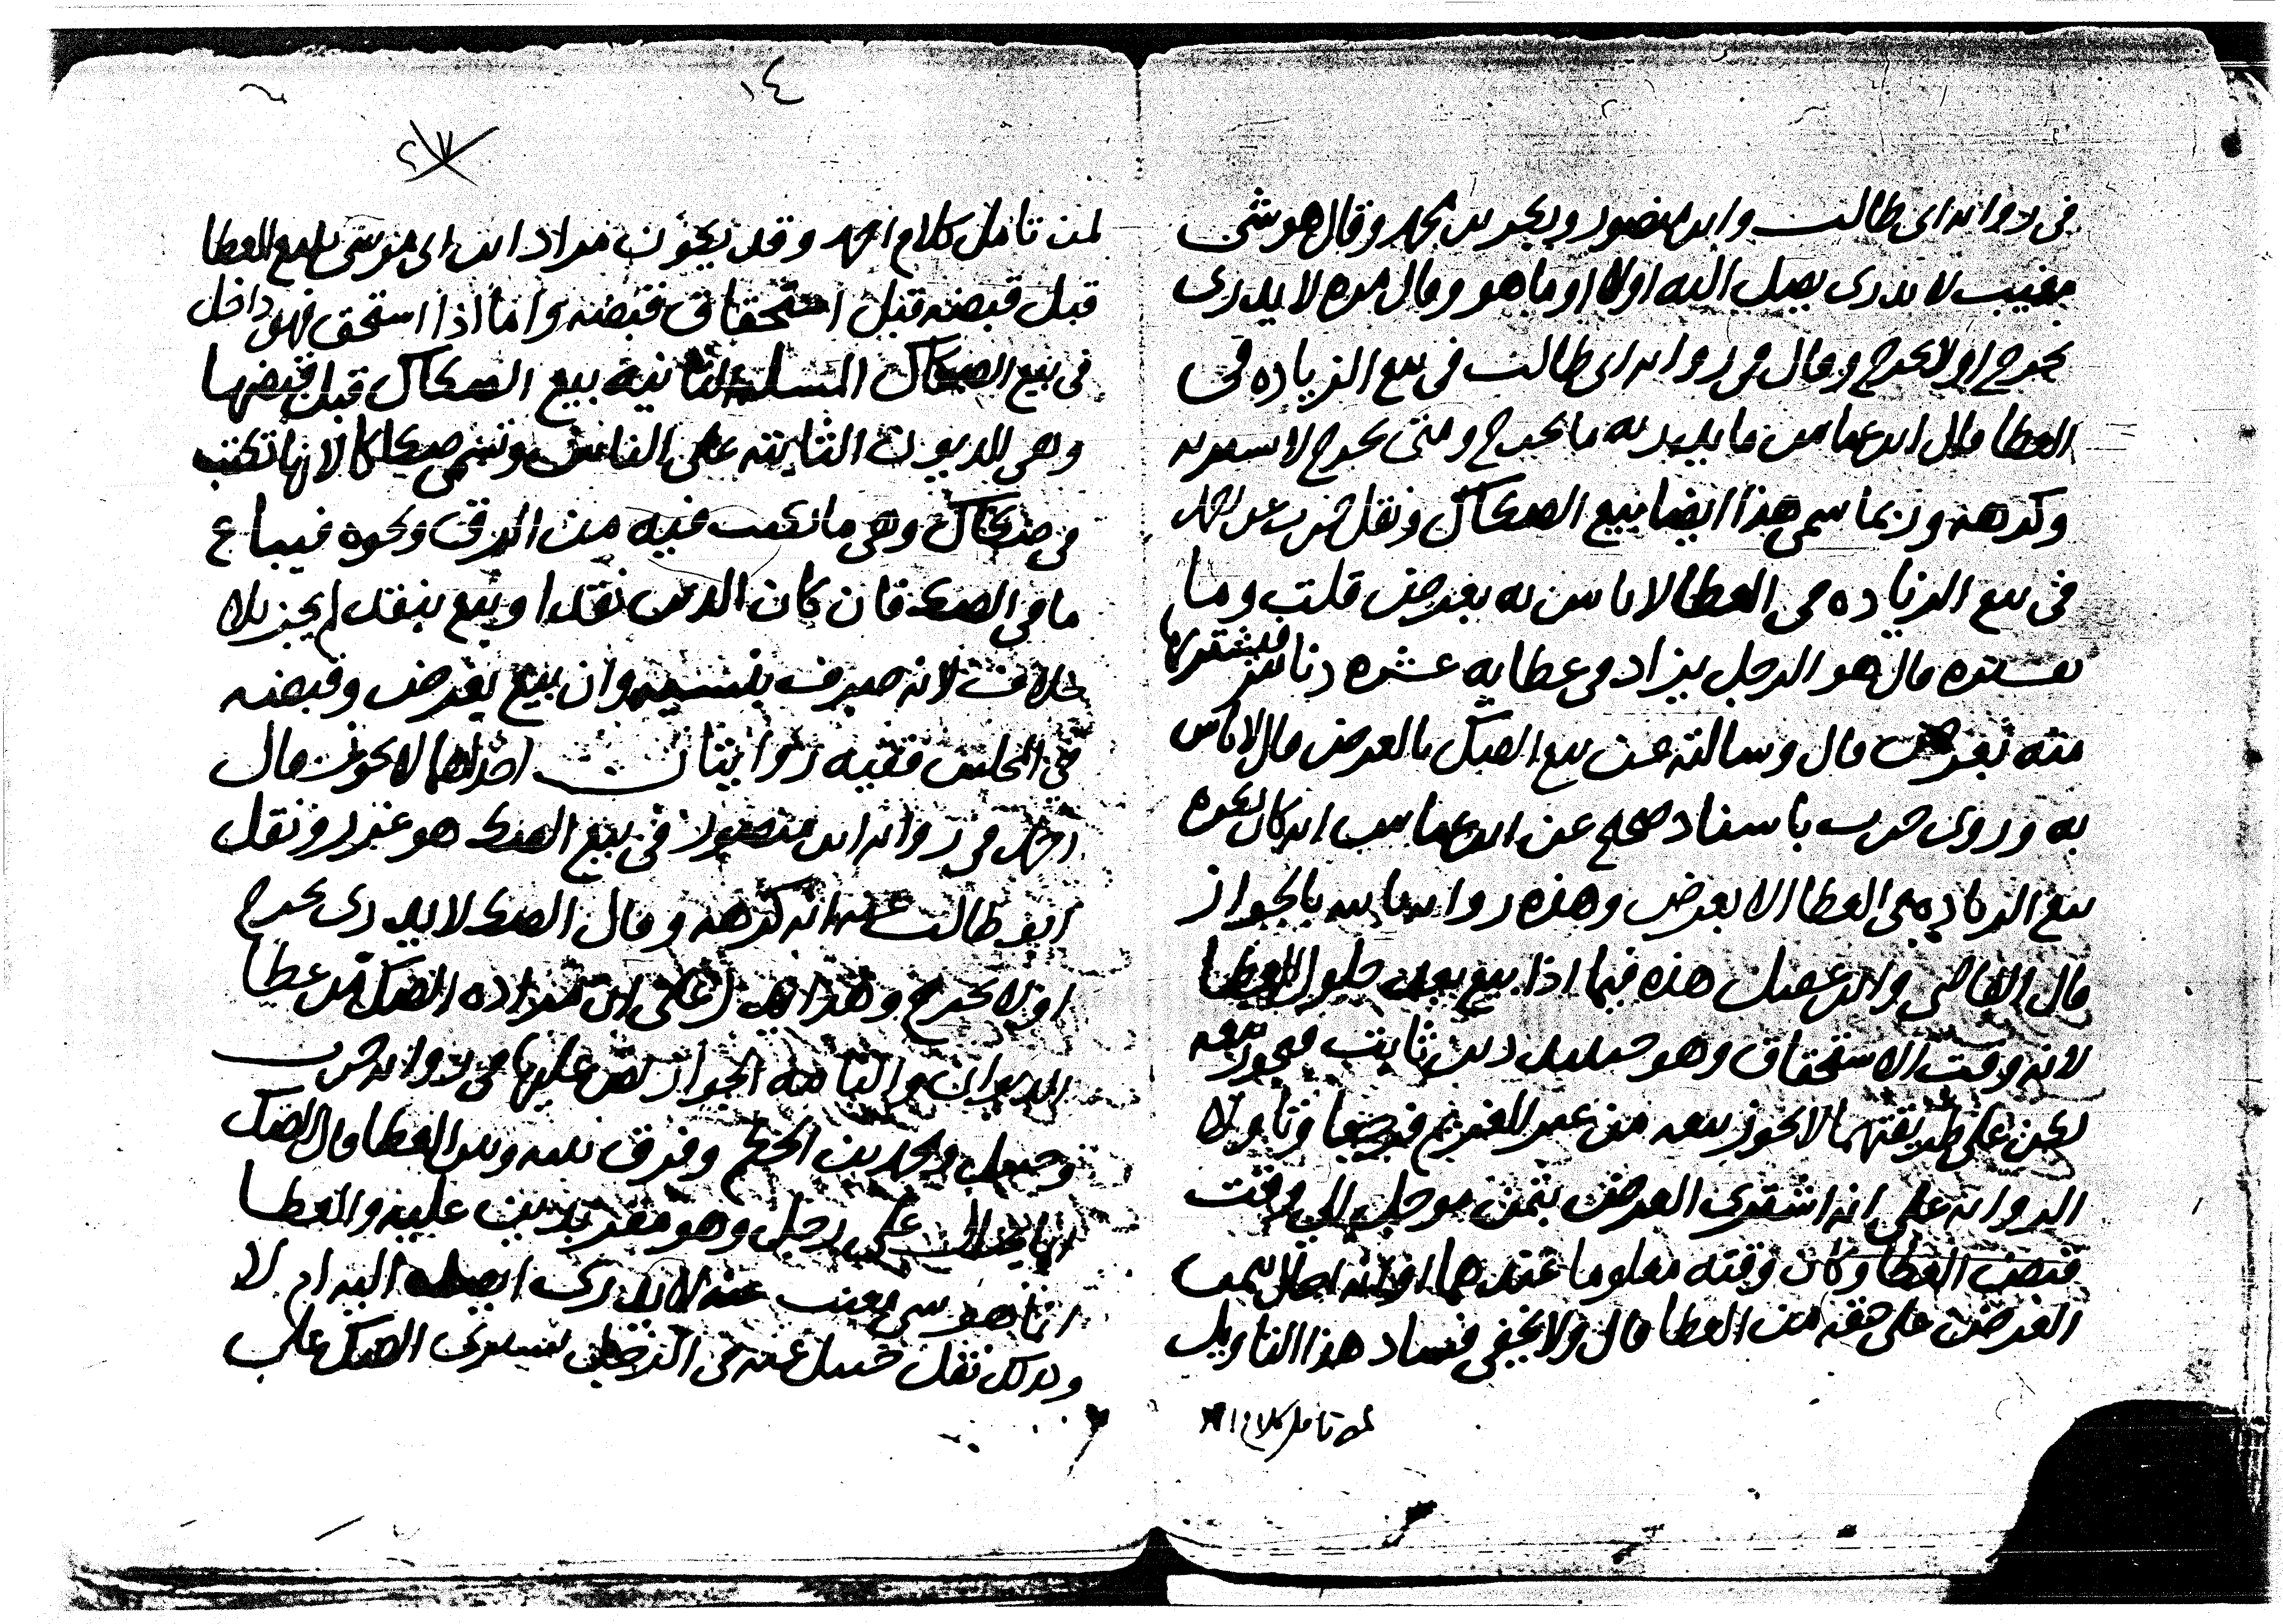 في رواية ابي طالب وابن منصور وبكر بن محمد وقال هو شي
مغيب لا يدري يصل اليه اولا او ما هو وقال مرة لا يدري
يخرج او لا يخرج وقال في رواية ابي طالب في بيع الزيادة في
العطا قال ابن عباس ما يدريه ما يخرج ومتى يخرج لا يشتريه
وكرهه وربما سمى هذا ايضا بيع الصكاك ونقل حرب عن احمد
في بيع الزيادة في العطا لا باس به بعرض قلت وما
تفسيره قال هو الرجل يزاد في عطايه عشرة دنانير فيشتريها
منه بعرض قال وسالته عن بيع الصك بالعرض قال لا باس
به وروى حرب باسناد صحيح عن ابن عباس انه كان يكره
بيع الزيادة في العطا الا بعرض وهذه رواية بالجواز
قال القاضي وابن عقيل هذه فيما اذا بيع بعد حلول العطا
لانه وقت الاستحقاق وهو حينيذ دين ثابت فيجوز بيعه
لكن على طريقتهما لا يجوز بيعه من غير الغريم فرجعا وتاولا
الرواية على انه اشترى العرض بثمن موجل الى وقت
قبض العطا وكان وقته معلوما عندهما او انه احال بثمن
العرض على حقه من العطا قال ولا يخفى فساد هذا التاويل
لمن تامل كلام احمد
١٤
لمن تامل كلام احمد وقد يكون مراد ابن ابي موسى ببيع العطا
قبل قبضه قبل استحقاق قبضه واما اذا استحق فهو داخل
في بيع الصكاك المسلة الثانية بيع الصكاك قبل قبضها
وهي الديون الثابتة على الناس وتسمى صكاكا لانها تكتب
في صكاك وهي ما يكتب فيه من الرق ونحوه فيباع
ما في الصك فان كان الدين نقدا وبيع بنقد لم يجز بلا
خلاف لانه صرف بنسيه وان بيع بعرض وقبضه
في المجلس ففيه روايتان احداهما لا يجوز قال
احمد في رواية ابن منصور في بيع الصك هو غرر ونقل
ابو طالب عنه انه كرهه وقال الصك لا يدري يخرج
او لا يخرج وهذا يدل على ان مراده الصك من عطا
الديوان والثانية الجواز نص عليها في رواية حرب
وحنبل ومحمد بن الحكم وفرق بينه وبين العطا وقال الصك
انما يحتال على رجل وهو مقر بدين عليه والعطا
انما هو شي مغيب عنه لا يدري ايصل اليه ام لا
وكذلك نقل حنبل عنه في الرجل يشتري الصك على